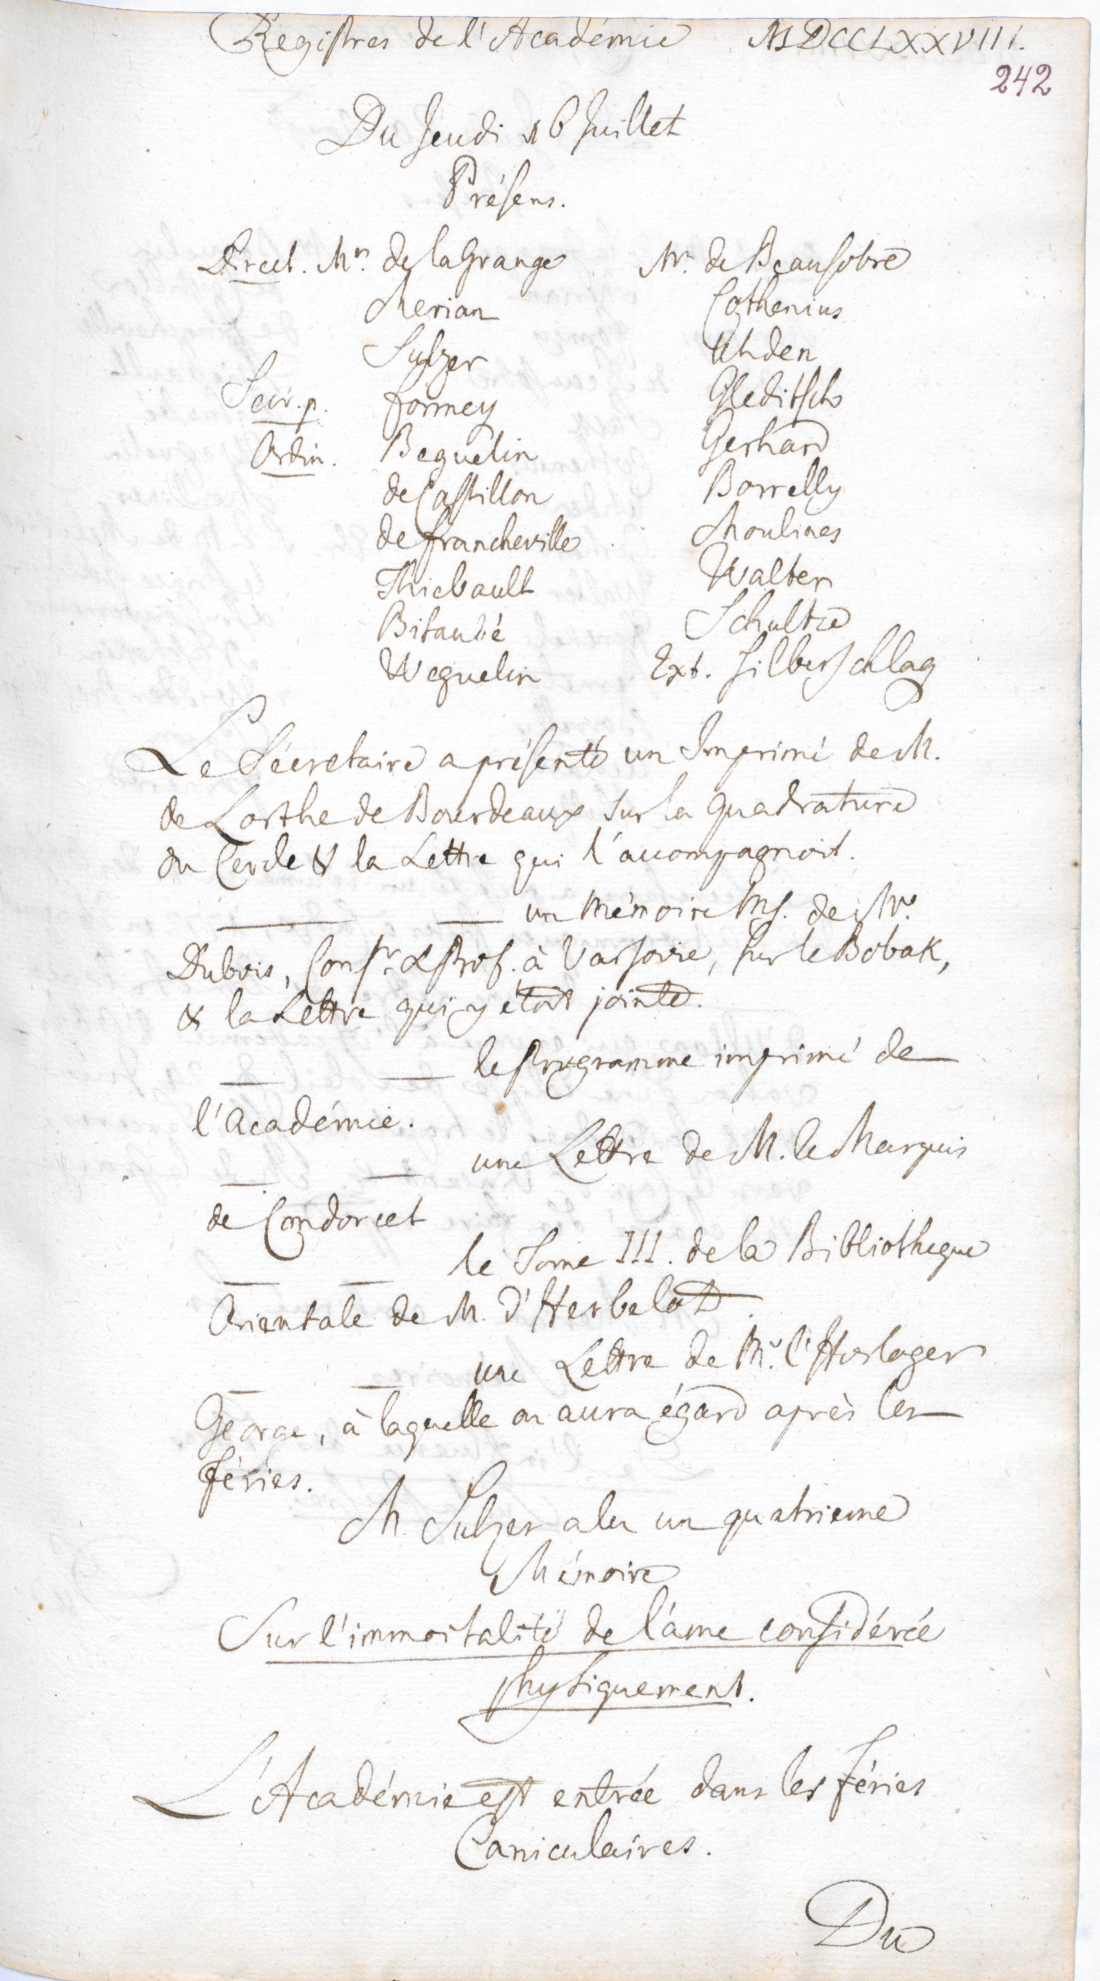 Registres de l'Académie MDCCLXXVIII.
242
Du Jeudi 16 Juillet
Présens.
Direct. Mrs. de la Grange
Merian
Sulzer
Secr. p. Formey
Ordin. Beguelin
de Castillon
de Francheville
Thiebault
Bitaubé
Weguelin
Mrs. de Beausobre
Cothenius
Uhden
Gleditsch
Gerhard
Borrelly
Moulines
Walter
Schultze
Ext. Silberschlag
Le Sécretaire a présenté un Imprimé de M.
de Lorthe de Bourdeaux sur la quadrature
du Cercle & la Lettre qui l'accompagnoit.
— — un Mémoire Ms. de Mr.
Dubois, Consr. & Prof. à Varsovie, sur le Bobak,
& la Lettre qui y étoit jointe.
— — le Programme imprimé de
l'Académie.
— — une Lettre de M. le Marquis
de Condorcet
— — le Tome III. de la Bibliotheque
Orientale de M. d'Herbelot.
— — une Lettre de Mr. l'Horloger
George, à laquelle on aura égard après les
féries.
M. Sulzer a lu un quatrieme
Mémoire
Sur l'immortalité de l'ame considérée
physiquement.
L'Académie est entrée dans les féries
Caniculaires.
Du